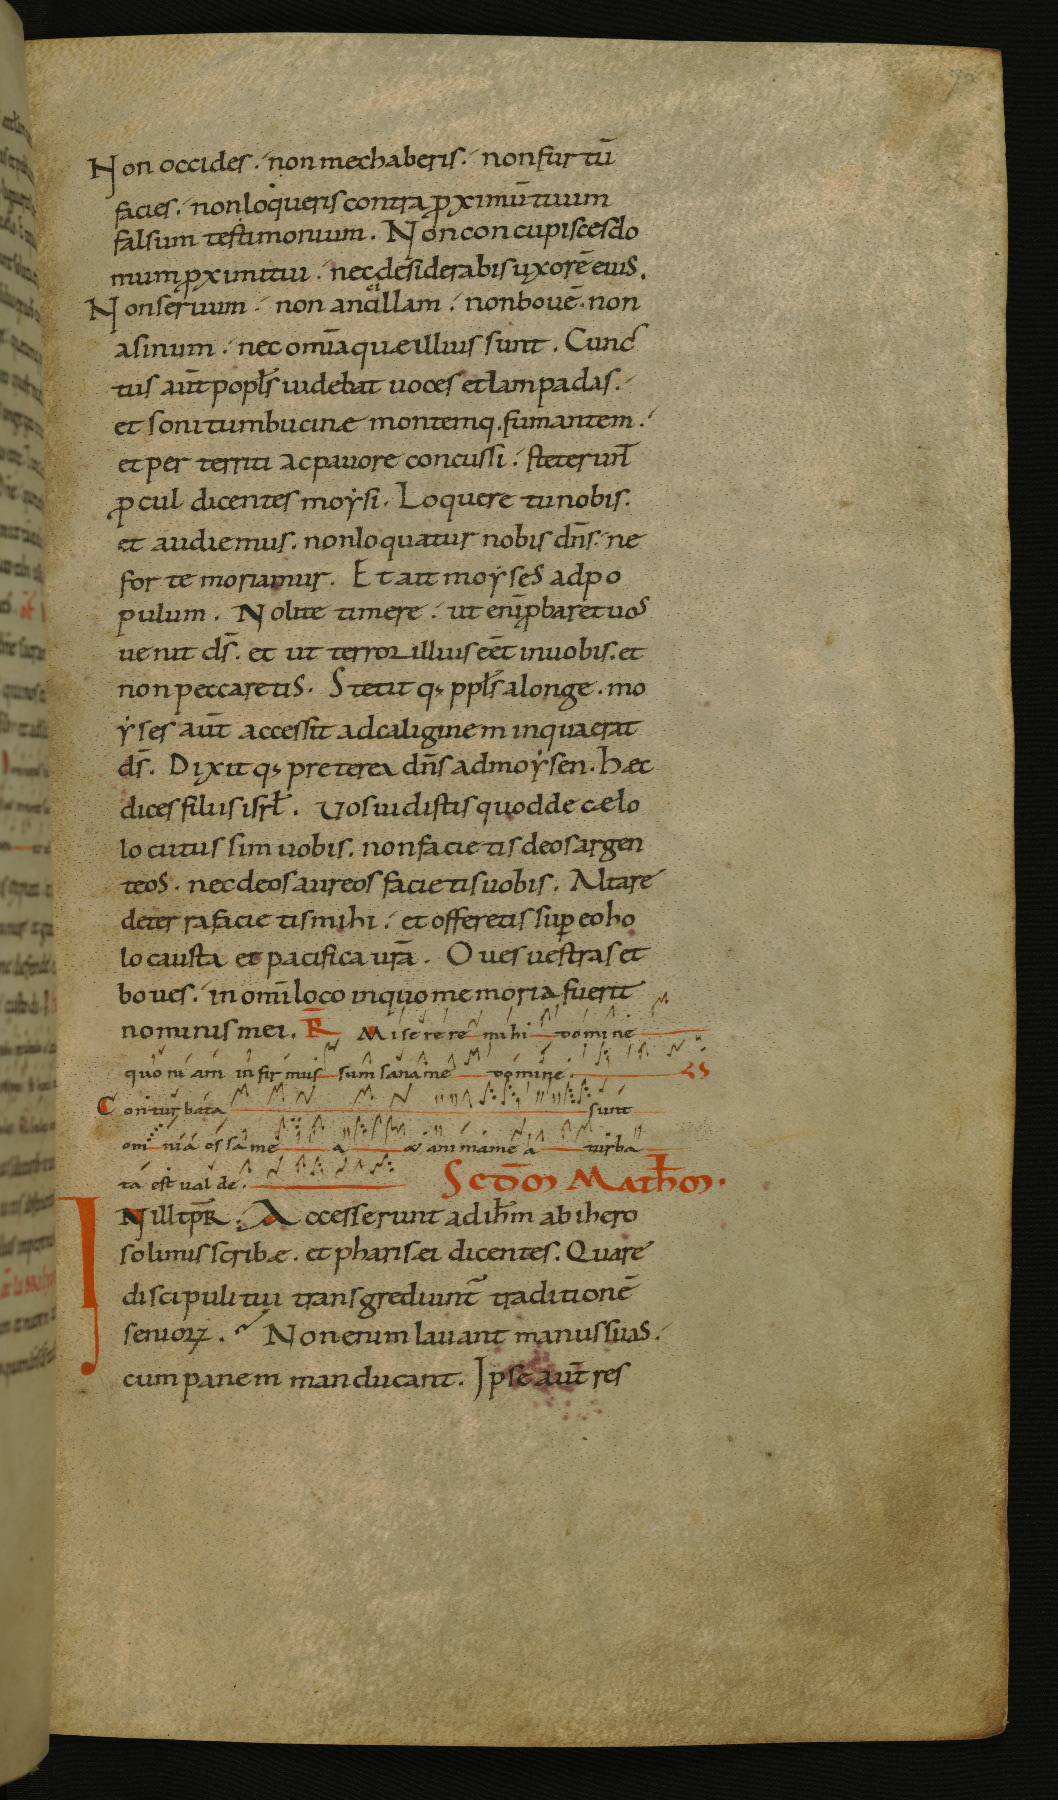 Non occides. non mechaberis. non furtū
facies. non loqueris contra pximū tuum
falsum testimonium. Non concupisces do
mum pximi tui. nec desiderabis uxorē eius.
Non seruum. non ancillam. non bouē. non
asinum. nec om̄ia quæ illius sunt. Cunc
tus aut̄ popl̄s uidebat uoces et lampadas.
et sonitum bucinæ montemq. fumantem.
et per territi ac pauore concussi. steterunt̄
pcul dicentes moẏsi. Loquere tu nobis.
et audiemus. non loquatur nobis dn̄s. ne
for te moriamur. Et ait moẏses ad po
pulum. Nolite timere. ut enī pbaret uos
uenit ds̄. et ut terror illius eēt in uobis. et
non peccaretis. Stetit q; ppl̄s a longe. mo
ẏses aut̄ accessit ad caliginem in qua erat
ds̄. Dixit q; preterea dn̄s ad moẏsen. Hæc
dices filiis isrl̄. Uos uidistis quod de cælo
locutus sim uobis. non facietis deos argen
teos. nec deos aureos facietis uobis. Altare
de terra facietis mihi. et offeretis sup eo ho
locausta et pacifica ur̄a. Oues uestras et
boues. in omī loco in quo memoria fuerit
nominis mei. R̄ Miserere mihi domine
quoniam infirmus sum sana me domine.
Conturbata sunt
omnia ossa mea et anima mea turba
ta est ualde. Scd̄m Mathm̄.
IN ill tp̄R. Accesserunt ad ih̄m ab ihero
solimis scribæ. et pharisæi dicentes. Quare
discipuli tui transgrediunt̄ traditionē
senioꝝ. Non enim lauant manus suas.
cum panem manducant. Ipse aut̄ res